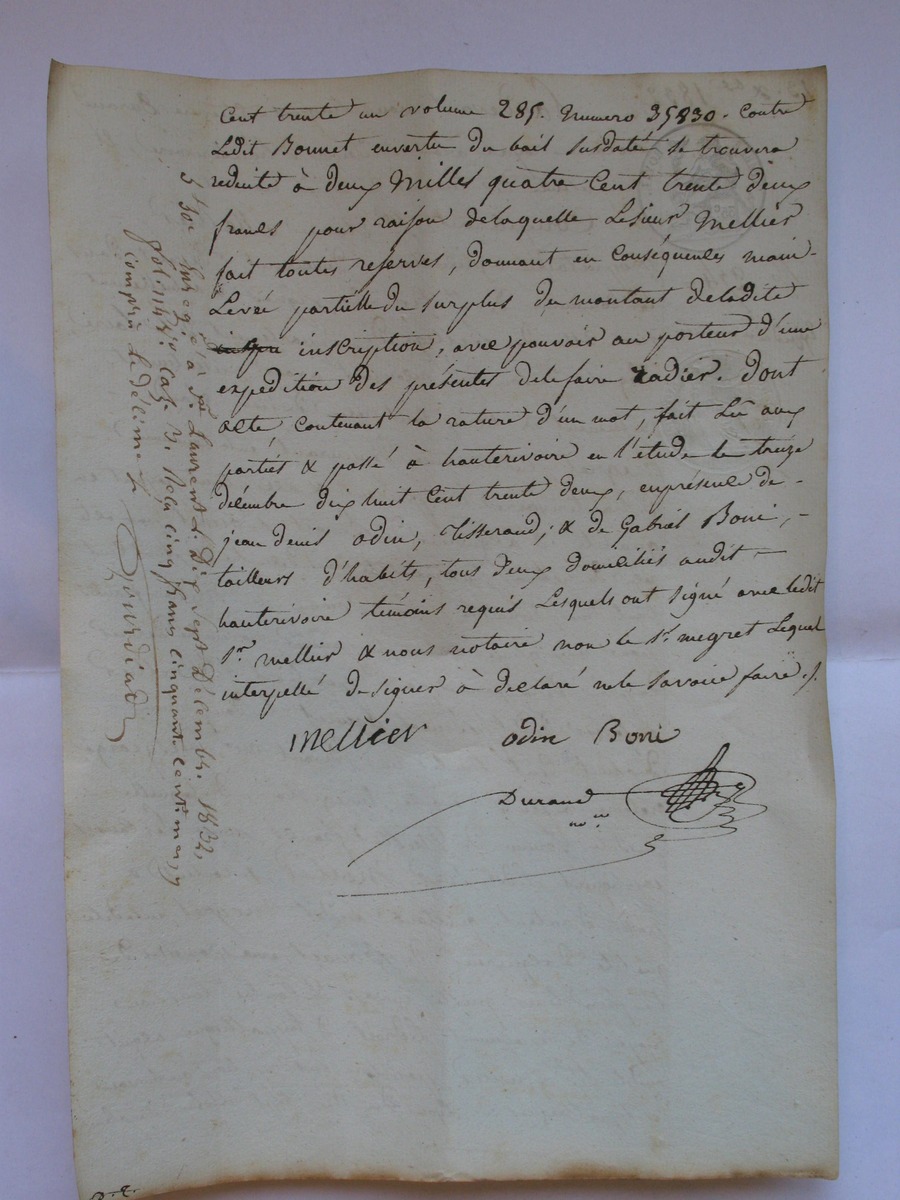 Cent trente un volume 285. Numero 35830. Contre
Ledit Bonnet envertu du bail susdaté se trouvera
reduite à deux Milles quatre Cent trente deux
francs pour raison delaquelle Lesieur Mellier
fait toutes reserves, donnant en Conséquences main-
Levée partielle du surplus du montant deladite
inscription, avec pouvoir au porteur d'une
expedition des présentes dele faire radier. Dont
acte contenant la rature d'un mot, fait Lû aux
parties & passé à hauterivoire en l'étude le treize
décembre dix huit Cent trente deux, enprésence de -
jean denis odin, tisserand; & de Gabriel Boni, -
tailleurs d'habits, tous deux domiciliés audit -
hauterivoire témoins requis Lesquels ont signé avec ledit
Sr. mellier & nous notaire non le Sr. megret Lequel
interpellé designer à declaré nele savoir faire./.
mellier odin Boni
Durand
nore
5f 50c Enregé à St. Laurent le Dix sept Décembre 1832,
fol. 114 Vo. Caz. 7. Reçu cinq francs cinquante centimes, y
compris le décime